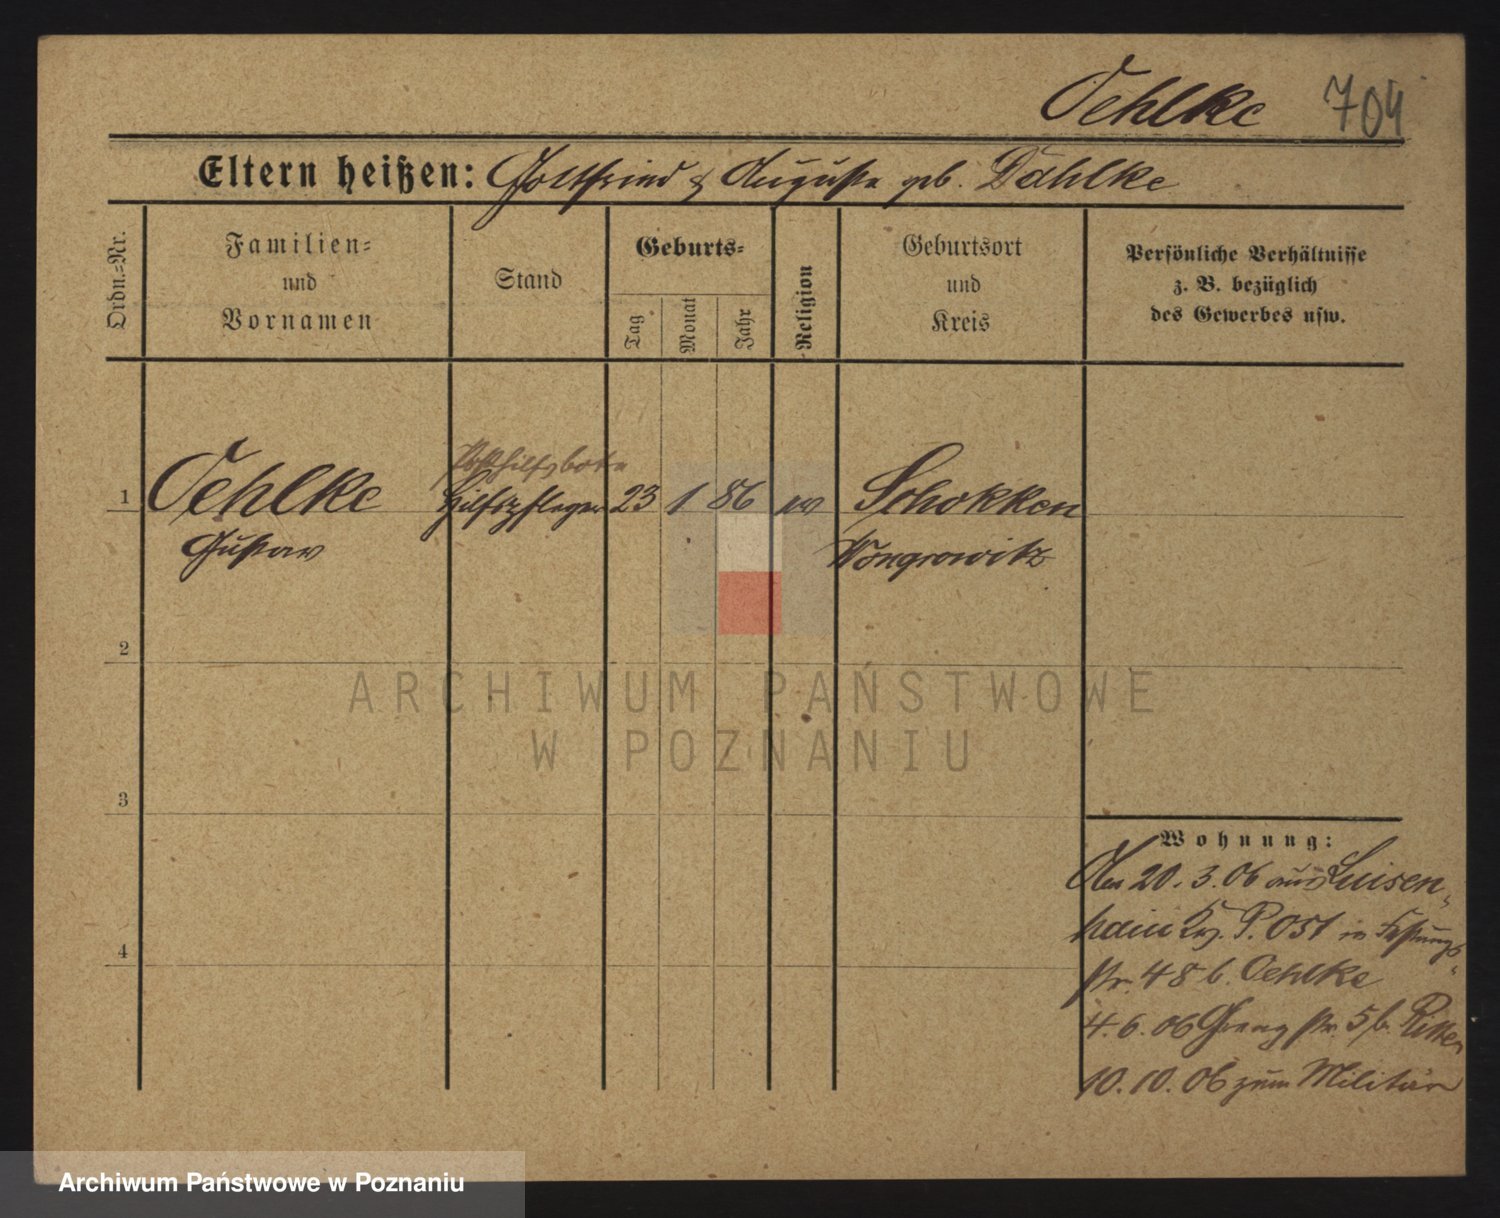 Oehlke 704
Eltern heißen: Gottfried & Auguste geb. Dahlke
Ordn.=Nr.
Familien=
und
Vornamen
Stand
Geburts=
Tag
Monat
Jahr
Religion
Geburtsort
und
Kreis
Persönliche Verhältnisse
z. B. bezüglich
des Gewerbes usw.
Posthilfsbote
1 Oehlke Hilfspfleger 23 1 86 ev Schokken
Gustav Wongrowitz
2
3
4
Wohnung:
Am 20. 3. 06 aus Luisen-
hain Krs. P. Ost in Festungs-
str. 48 b. Oehlke
4. 6. 06 Grenzstr. 5 b. Ritter
10. 10. 06 zum Militär
ARCHIWUM PAŃSTWOWE
W POZNANIU
Archiwum Państwowe w Poznaniu